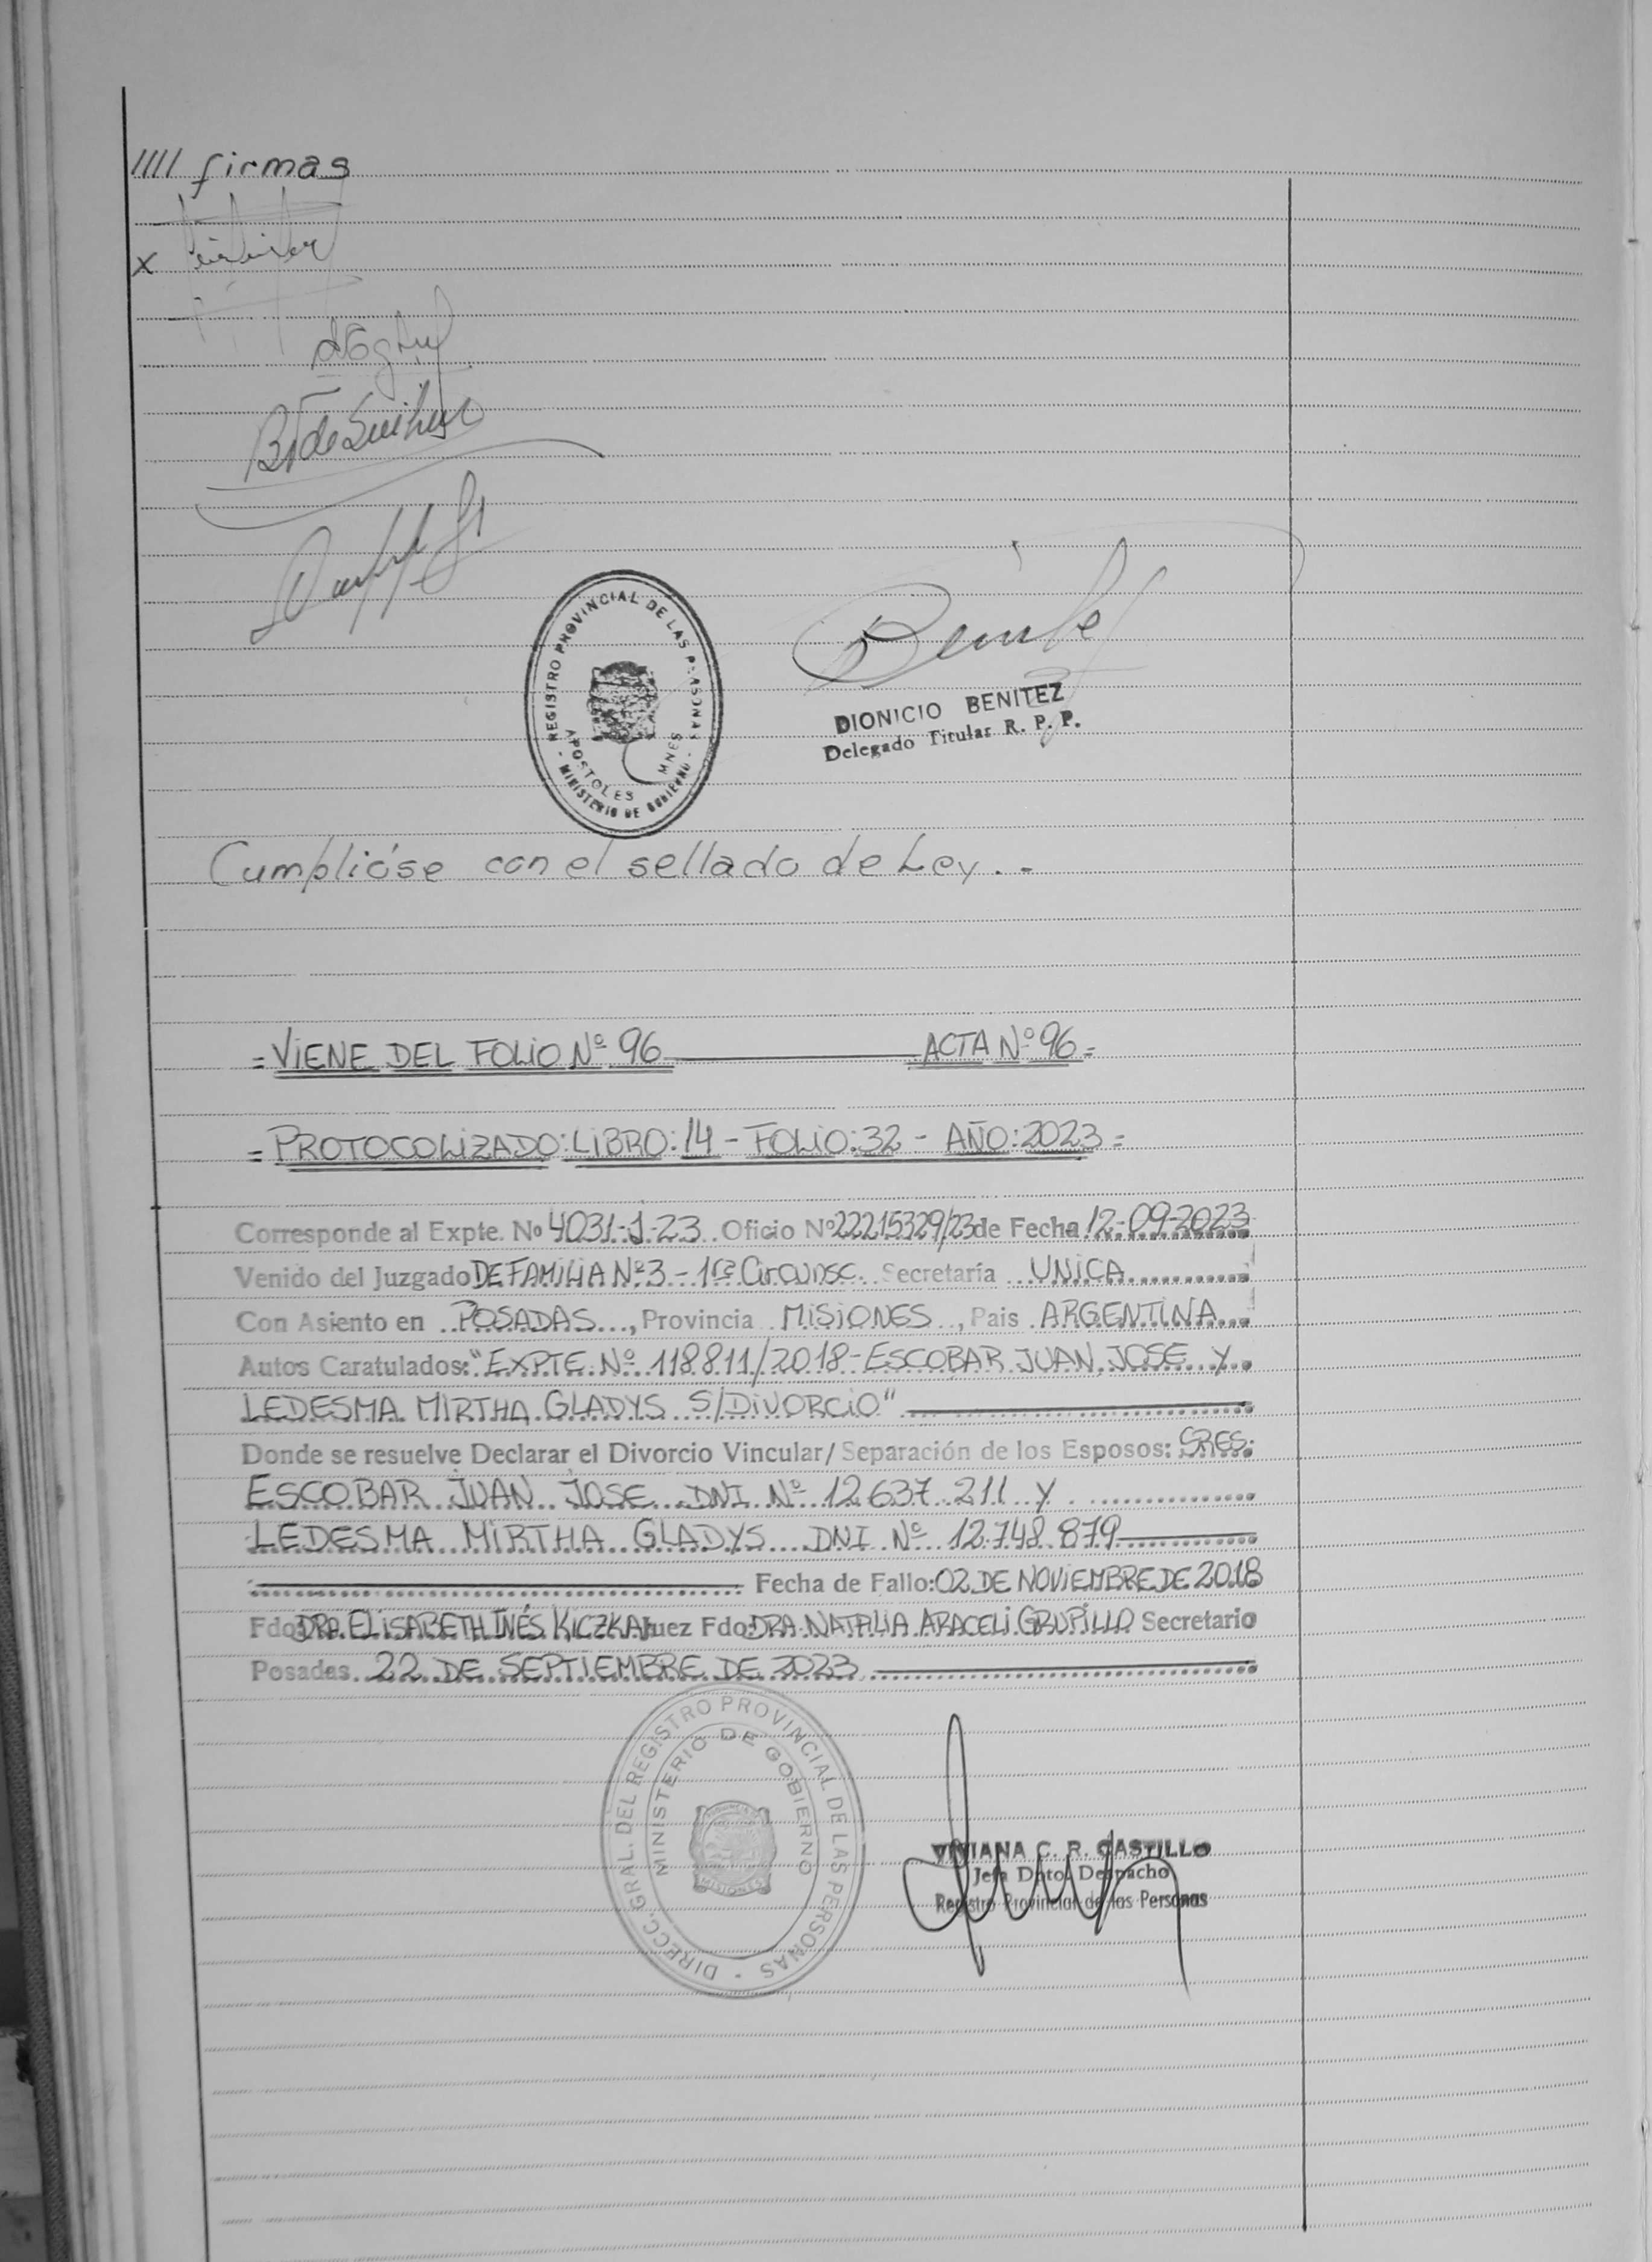 //// firmas
x
REGISTRO PROVINCIAL DE LAS PERSONAS
APOSTOLES MNES
- MINISTERIO DE GOBIERNO -
DIONICIO BENITEZ
Delegado Titular R. P. P.
Cumplióse con el sellado de Ley. -
= VIENE DEL FOLIO Nº 96 ACTA Nº 96 =
= PROTOCOLIZADO: LIBRO: 14 - FOLIO: 32 - AÑO: 2023 =
Corresponde al Expte. Nº 4031-J-23 Oficio Nº 22215329/23 de Fecha 12-09-2023
Venido del Juzgado DE FAMILIA Nº 3 - 1ra Circunsc. Secretaría UNICA
Con Asiento en POSADAS, Provincia MISIONES, Pais ARGENTINA
Autos Caratulados: "EXPTE. Nº 118.811/2018 - ESCOBAR JUAN JOSE Y
LEDESMA MIRTHA GLADYS S/DIVORCIO"
Donde se resuelve Declarar el Divorcio Vincular/ Separación de los Esposos: SRES:
ESCOBAR JUAN JOSE DNI Nº 12.637.211 Y
LEDESMA MIRTHA GLADYS DNI Nº 12.748.879
Fecha de Fallo: 02 DE NOVIEMBRE DE 2018
Fdo DRA. ELISABETH INÉS KICZKA Juez Fdo DRA. NATALIA ARACELI GRUPILLO Secretario
Posadas 22 DE SEPTIEMBRE DE 2023
DIRECC. GRAL. DEL REGISTRO PROVINCIAL DE LAS PERSONAS -
MINISTERIO DE GOBIERNO
MISIONES
VIVIANA C. R. CASTILLO
Jefa Dpto. Despacho
Registro Provincial de las Personas